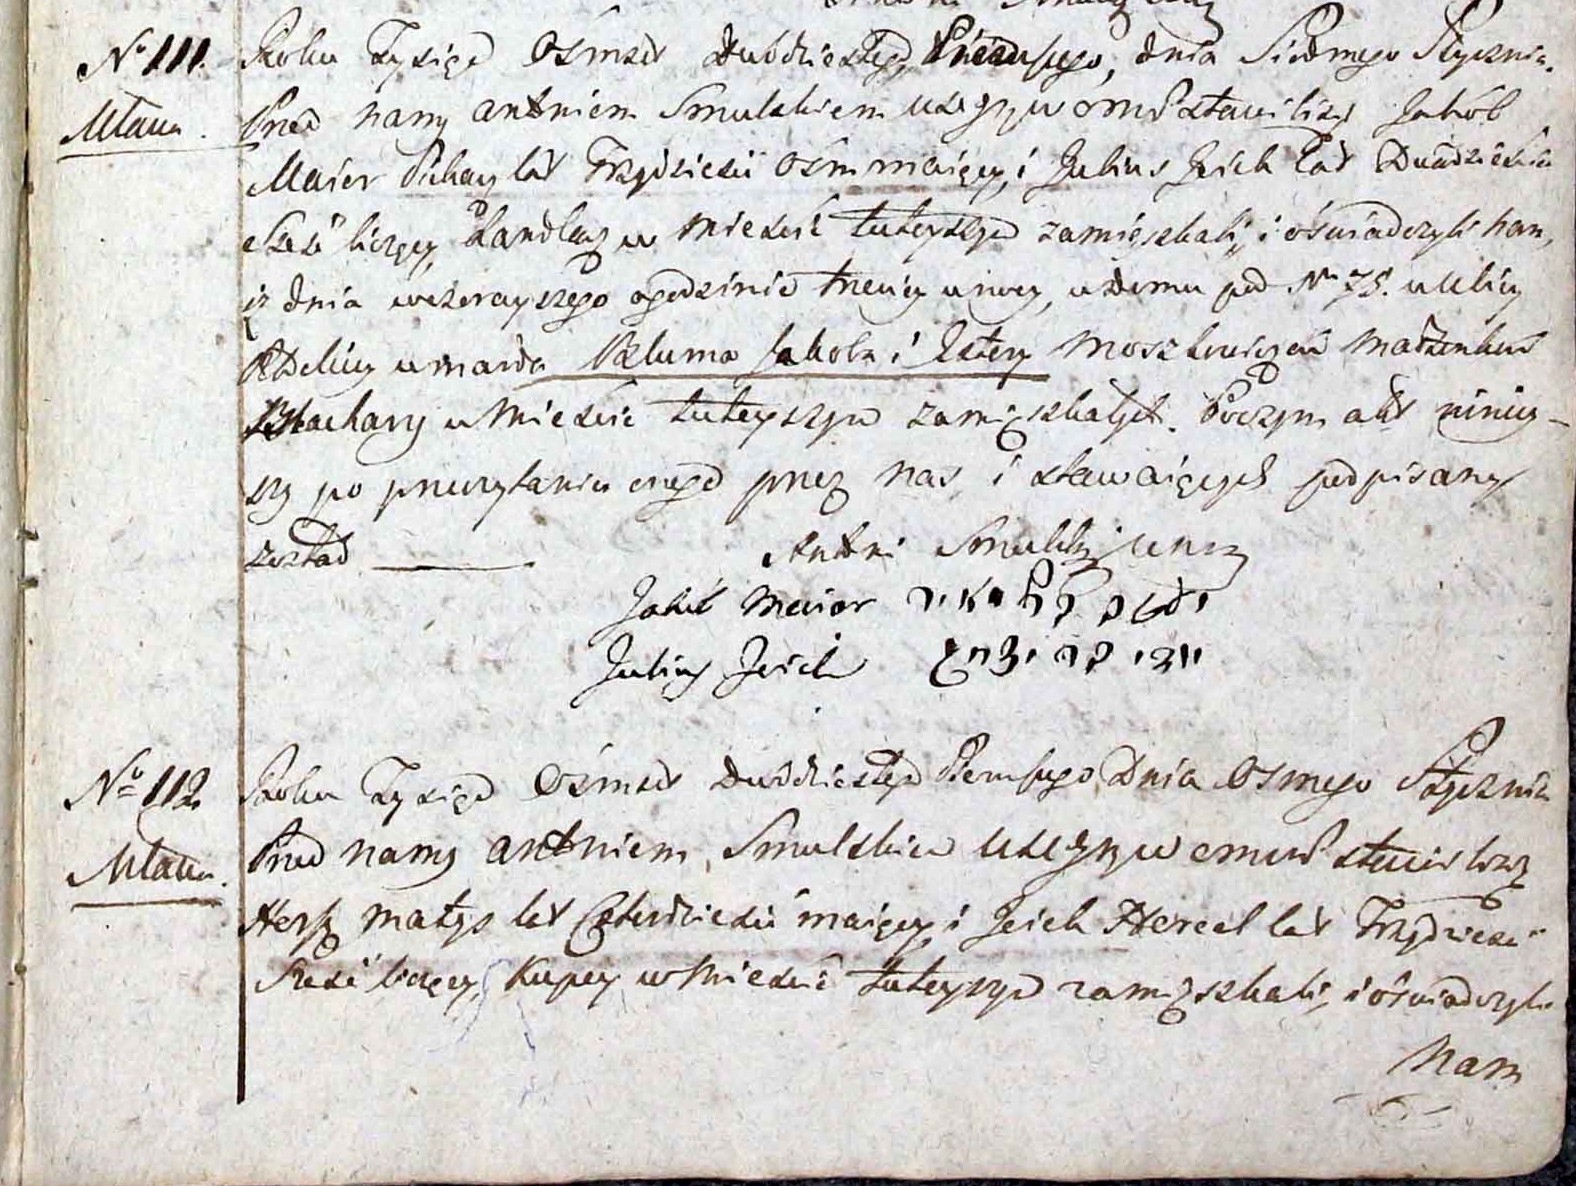 No 111. Roku Tysiąc Ośmset Dwudziestego Pierwszego, dnia Siódmego Stycznia.
Mława. Przed namy antoniem Smulskiem stawili się Jakób
Maier lat Trzydzieści Ośm maiący, i Julius Jzick Lat Dwadzieścia
Sześć liczący, Handlarz w Mieście tuteyszym zamięszkali, i oświadczyli nam,
iż dnia wczorayszego ogodzinie trzeciy w nocy, w Domu pod No 75. w Ulicy
umarła Bluma Jakoba i Estery Moszkowiczów Małżonków
w Mieście tuteyszym zamięszkałych. Poczym akt niniey-
szy po przeczytaniu onego przez nas i stawaiących podpisany
został
Antoni Smulski
Jakób Maior
Julius Jzick
No 112. Roku Tysiąc Ośmset Dwudziestego Pierwszego, Dnia Osmego Stycznia
Mława. Przed namy antoniem Smulskiem stawili się
Hersz Matys lat Czterdzieści maiący, i Jzick Hercel lat Trzydzieści
Sześć liczący, Kupcy w Mieście tuteyszym zamięszkali, i oświadczyli
Nam